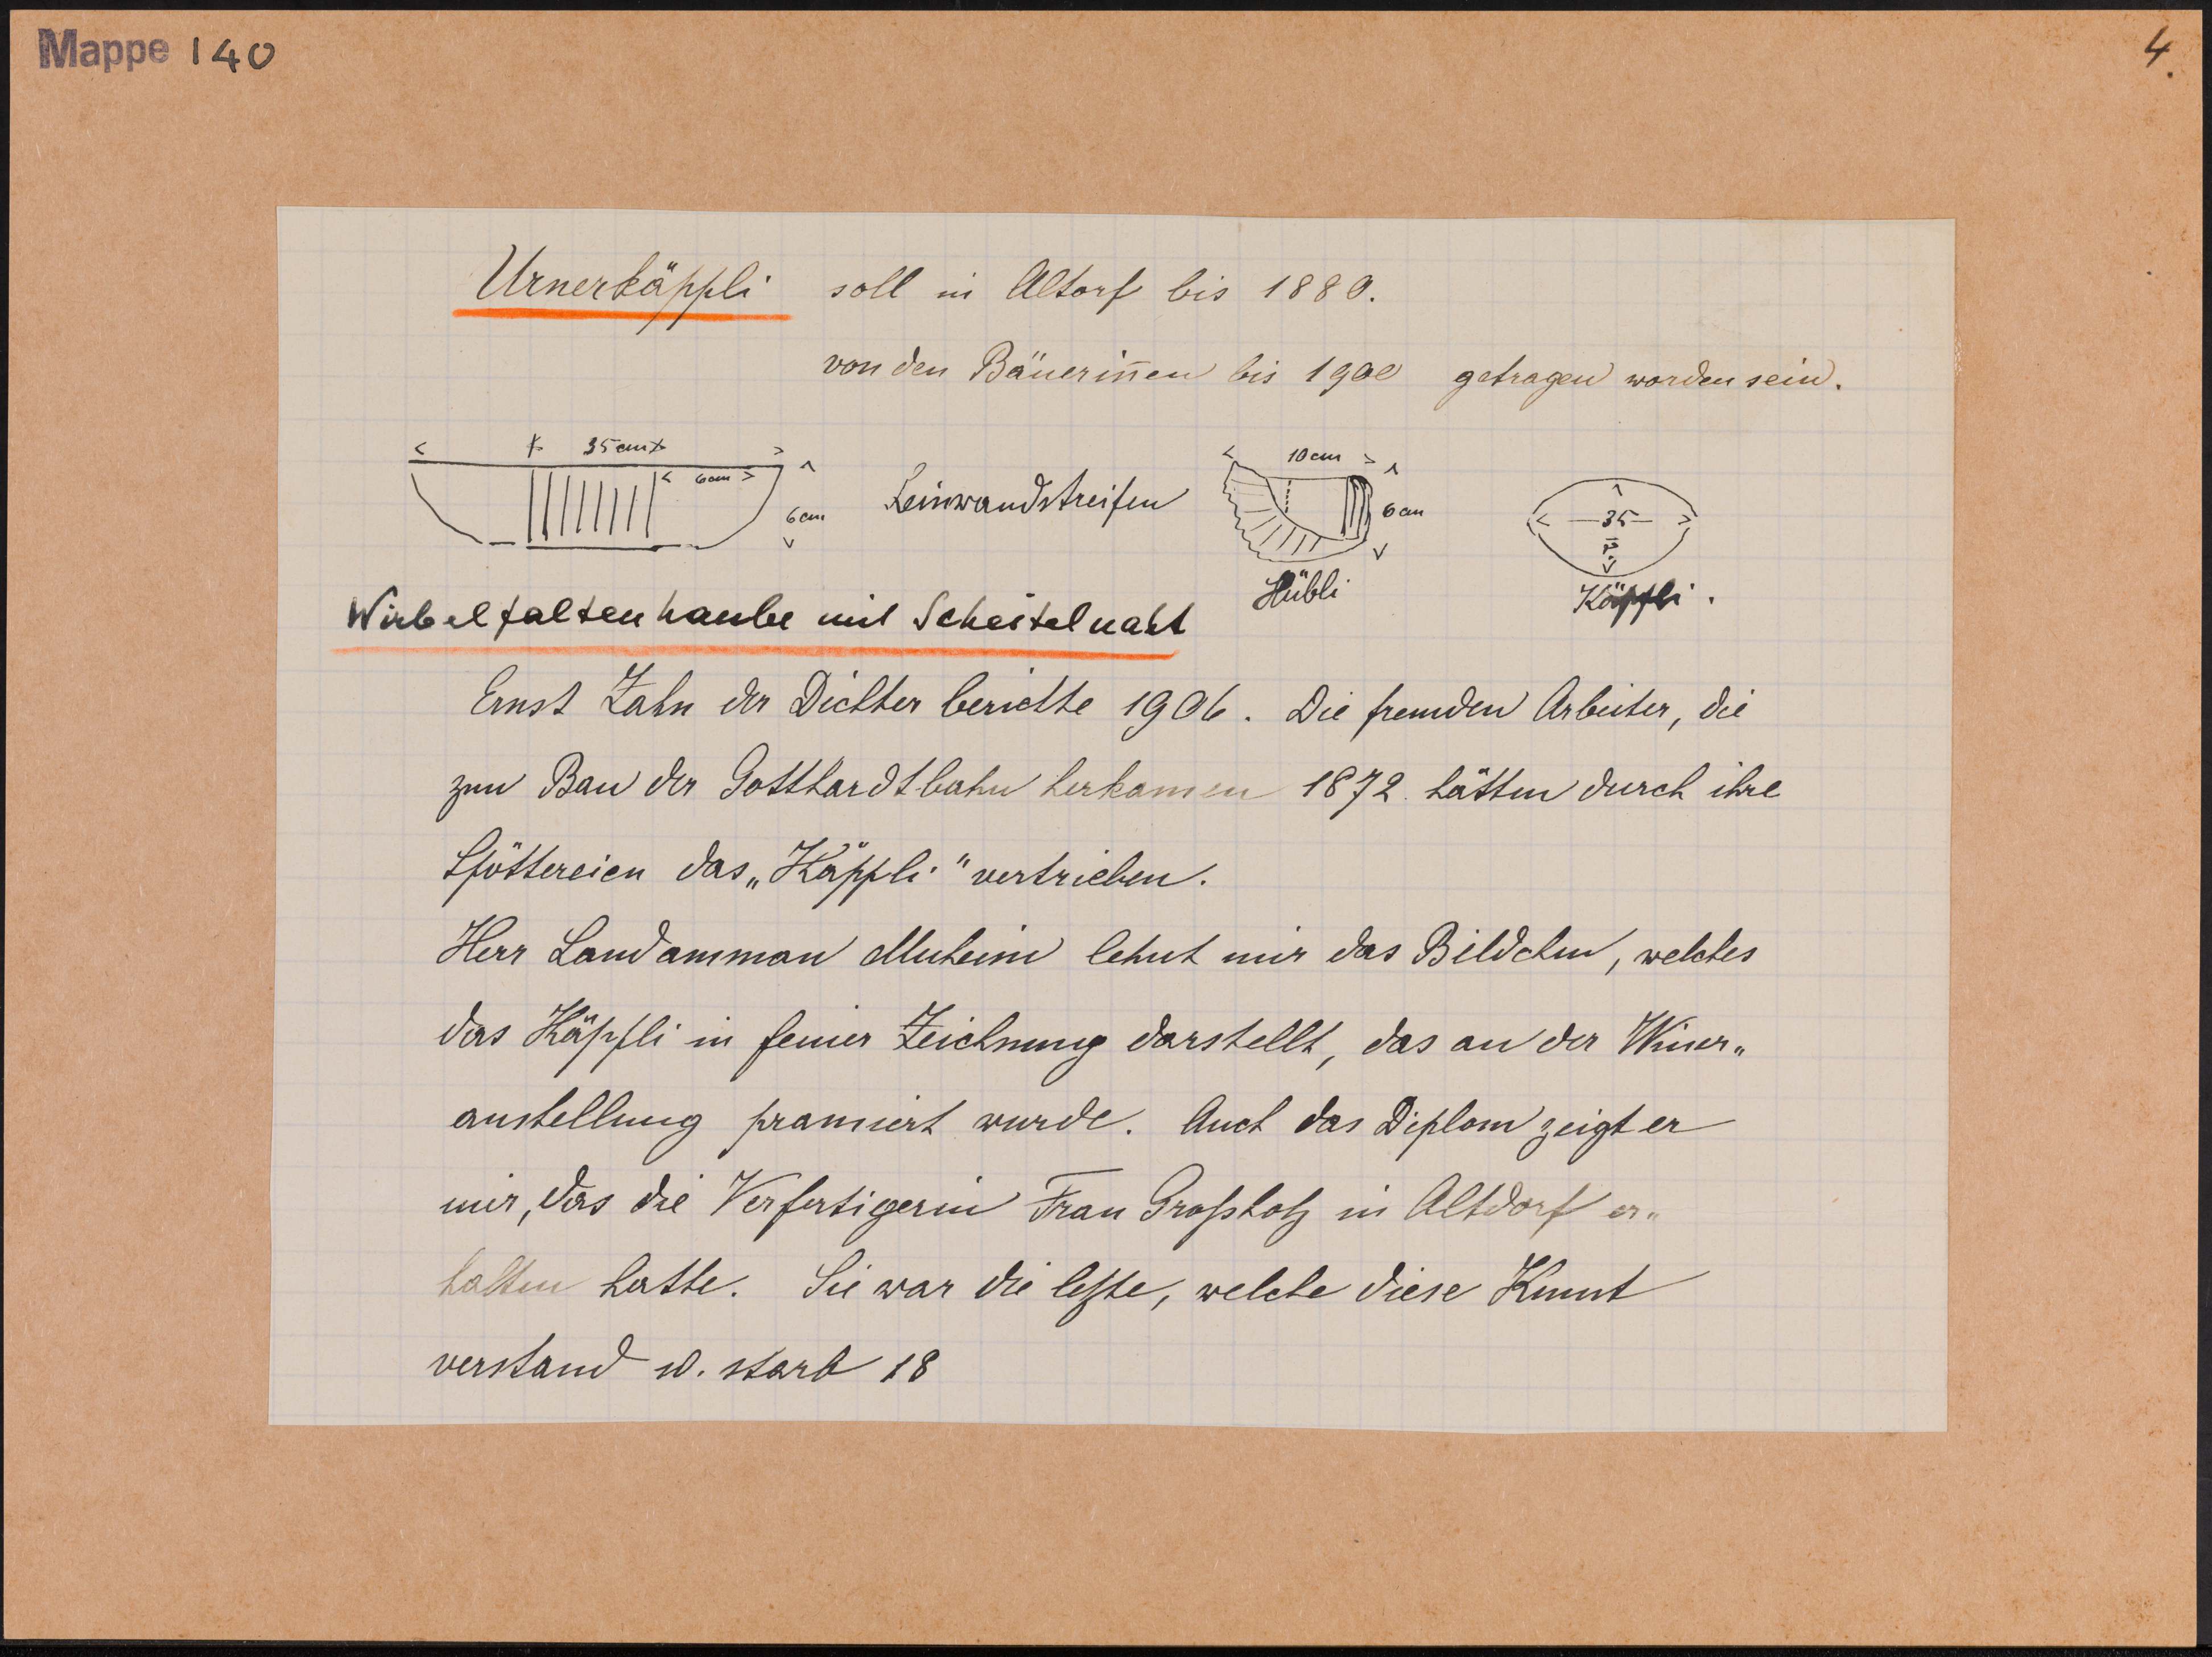 Mappe 140
4.
Urnerkäppli soll in Altorf bis 1880.
von den Bäuerinnen bis 1900 getragen worden sein.
35 cm
6 cm
6 cm
Leinwandstreifen
10 cm
6 cm
Hübli
35
Käppli.
Wirbelfaltenhaube mit Scheitelnaht
Ernst Zahn der Dichter berichte 1906. Die fremden Arbeiter, die
zum Bau der Gotthardtbahn herkamen 1872 hätten durch ihre
Spöttereien das „Käppli“ vertrieben.
Herr Landamman Muheim lehnt mir das Bildchen, welches
das Käppli in feiner Zeichnung darstellt, das an der Winer„
anstellung pramiert wurde. Auch das Diplom zeigt er
mir, das die Verfertigerin Frau Großholz in Altdorf er„
halten hatte. Sie war die letzte, welche diese Kunst
verstand u. starb 18